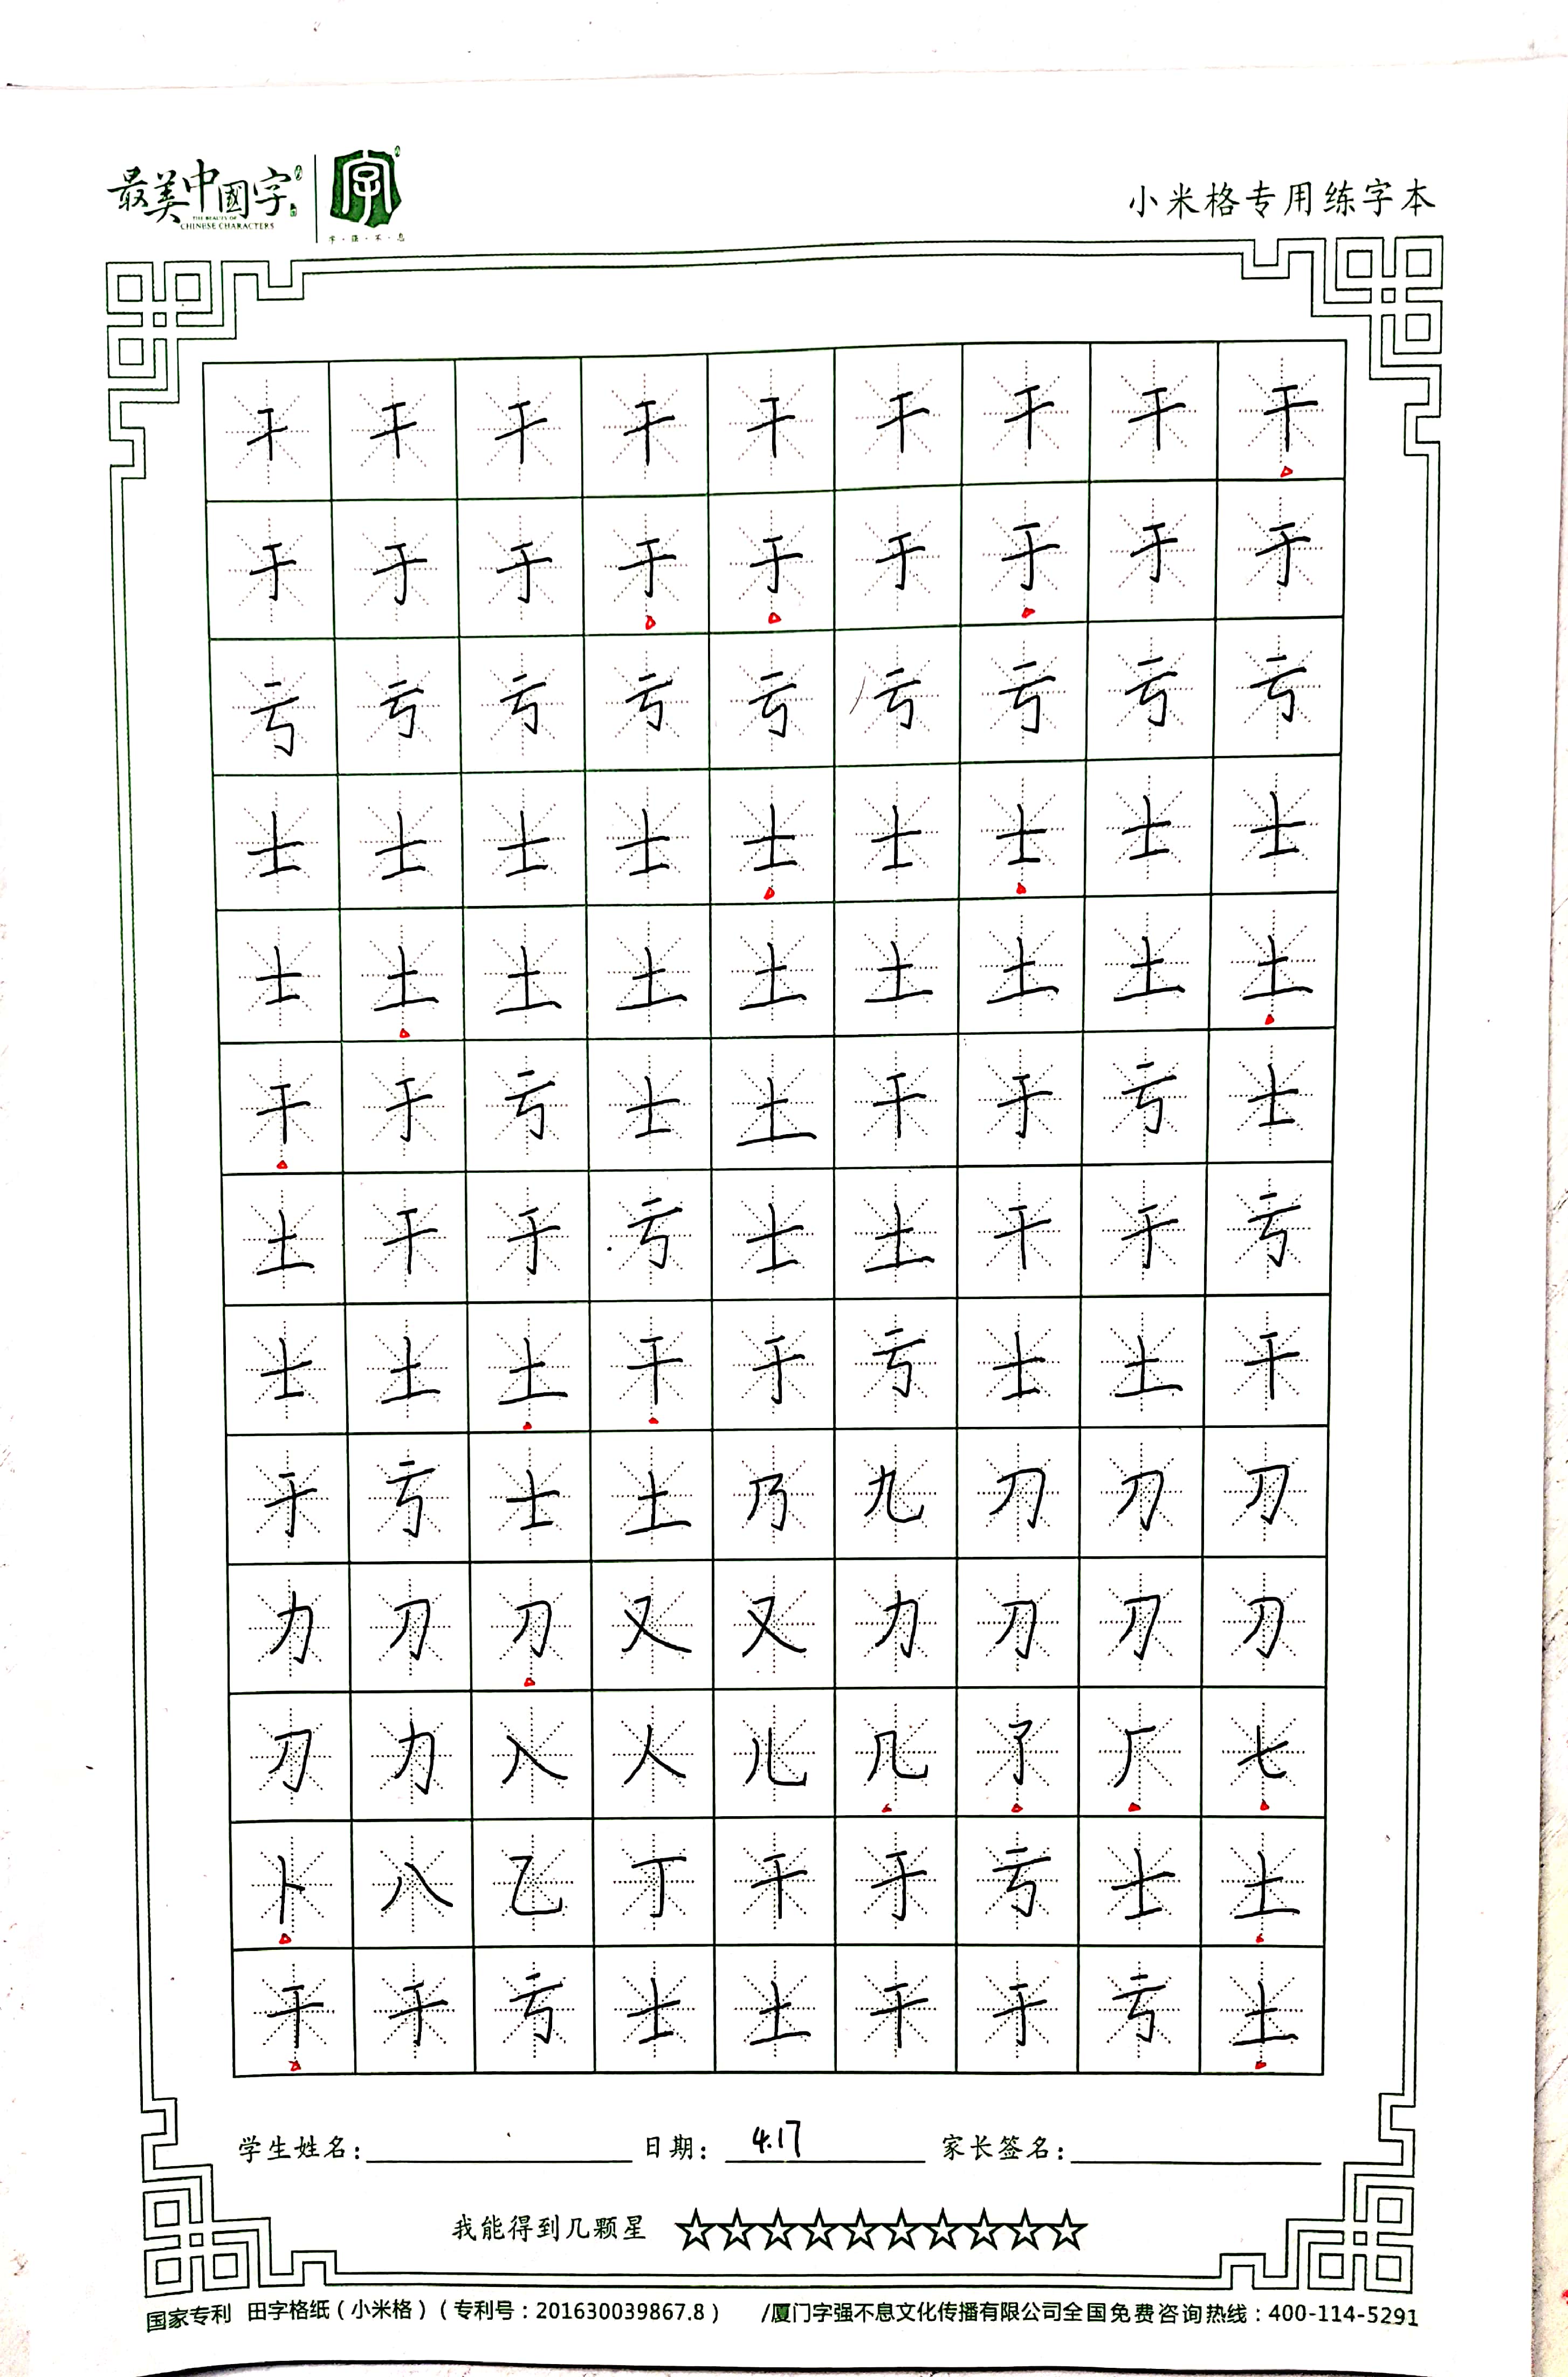 最美中國字
THE BEAUTY OF
CHINESE CHARACTERS
字
字·强·不·息
小米格专用练字本
干干干干干干干干干
于于于于于于于于于
亏亏亏亏亏亏亏亏亏
士士士士士士士士士
士土土土土土土土土
干于亏士土干于亏士
土干于亏士土干于亏
士土土干于亏士土干
于亏士土乃九刀刀刀
力刀刀又又力刀刀刀
刀力入人儿几了厂七
卜八乙丁干于亏士土
干于亏士土干于亏土
学生姓名：
日期： 4.17
家长签名：
我能得到几颗星 ☆☆☆☆☆☆☆☆☆☆
国家专利 田字格纸（小米格）（专利号：201630039867.8） /厦门字强不息文化传播有限公司全国免费咨询热线：400-114-5291